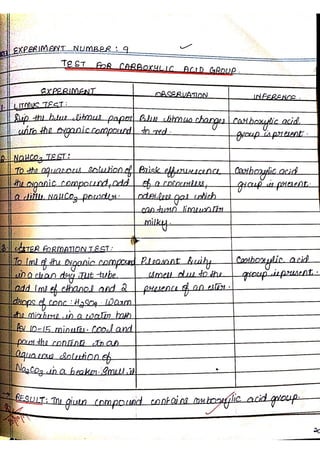 EXPERIMENT NUMBER : 9
TEST FOR CARBOXYLIC ACID GROUP.
EXPERIMENT OBSERVATION INFERENCE
1. LITMUS TEST:
Dip the blue litmus paper Blue litmus changes Carboxylic acid
into the organic compound to red. group is present.
2. NaHCO3 TEST:
To the aqueous solution of Brisk effervescence, Carboxylic acid
the organic compound, add of a colourless, group is present.
a little NaHCO3 powder. odourless gas which
can turn limewater
milky.
3. ESTER FORMATION TEST:
To 1ml of the organic compound Pleasant fruity Carboxylic acid
in a clean dry test tube. smell due to the group is present.
add 1ml of ethanol and 2 presence of an ester.
drops of conc: H2SO4. Warm
the mixture in a water bath
for 10-15 minutes. Cool and
pour the contents to an
aqueous solution of
Na2CO3 in a beaker. Smell it
RESULT: The given compound contains carboxylic acid group.